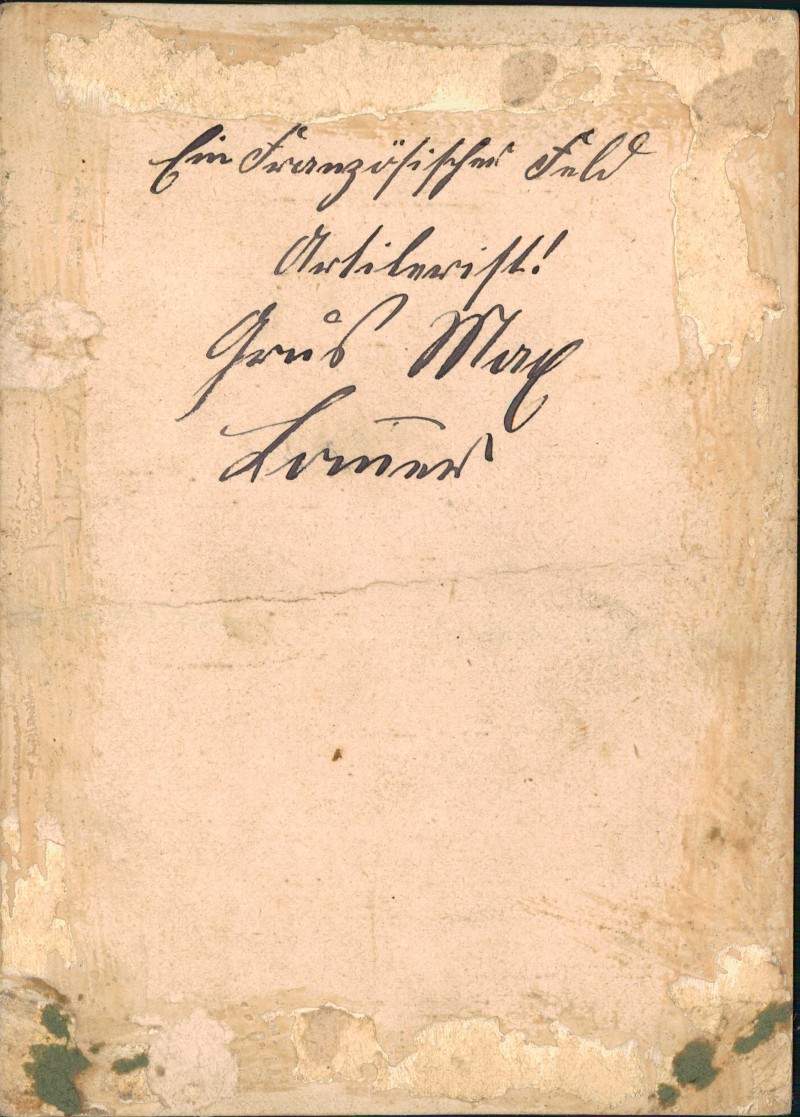 Ein Französischer Feld
Artilerist!
Grus Max